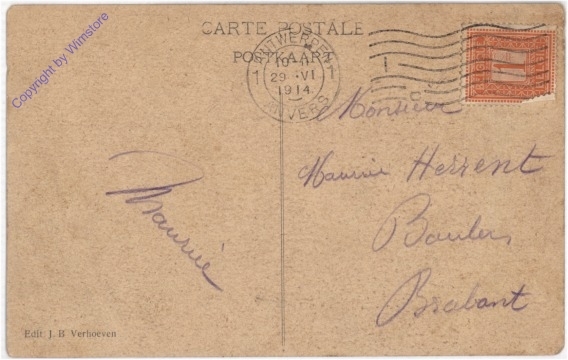 CARTE POSTALE
POSTKAART
ANTWERPEN 1
10-11
29 VI
1914
1 ANVERS
Monsieur
Maurice Herrent
Brabant
Maurice
Edit. J. B Verhoeven
Copyright by Wimstore